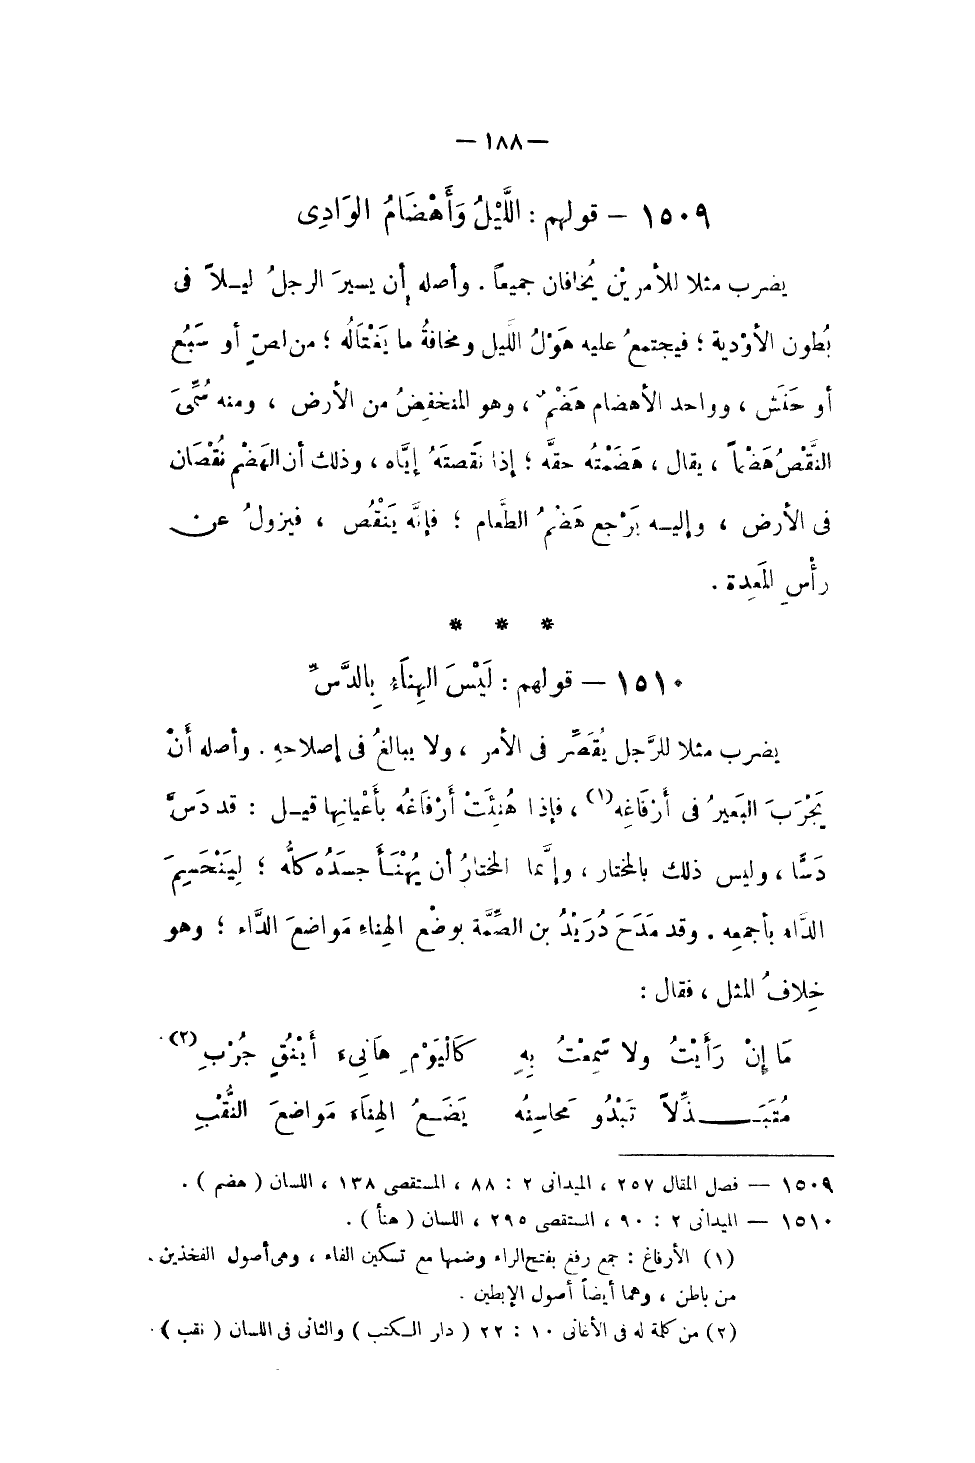 — ١٨٨ —
١٥٠٩ – قولهم : اللَّيْلُ وَأَهْضَامُ الوَادِى
يضرب مثلا للأمريْن يُخافان جميعاً . وأصله أن يسيرَ الرجلُ ليـلاً فى
بُطون الأوْدية ؛ فيجتمعُ عليه هَوْلُ اللَّيل ومخافةُ ما يَغْتَالُه ؛ من لصٍّ أو سَبُع
أو حَنَش ، وواحد الأهضام هَضْم ٌ، وهو المنخفِضُ من الأرض ، ومنه سُمِّىَ
النَّقْصُ هَضْماً ، يقال ، هَضَمْتُه حقَّه ؛ إذا نقَصتَهُ إيَّاه ، وذلك أن الهَضْم نُقْصَان
فى الأرض ، وإليـه يَرْجع هَضْمُ الطَّعام ؛ فإنَّه يَنْقُص ، فيزولُ عن
رأْسِ المَعِدة .
* * *
١٥١٠ – قولهم : لَيْسَ الهِنَاءُ بِالدَّسِّ
يضرب مثلا للرَّجل يُقَصِّر فى الأمر ، ولا يبالغُ فى إصلاحهِ . وأصله أَنْ
يَجْرَبَ البَعيرُ فى أَرْفَاغِه(١) ، فإذا هُنِئَتْ أَرْفَاغُه بأَعْيانِها قيـل : قد دَسَّ
دَسًّا ، وليس ذلك بالمختار ، وإنَّما المختارُ أن يُهْنَأَ جسدُه كلُّه ؛ لِيَنْحَسِمَ
الدَّاء بأجمعِه . وقد مَدَحَ دُرَيْدُ بن الصِّمَّة بوضْع الهِناءِ مَواضعَ الدَّاء ؛ وهو
خِلافُ المثل ، فقال :
مَا إِنْ رَأَيْتُ ولا سَمِعْتُ بِهِ كَالْيَوْمِ هَانِىءَ أَيْنُقٍ جُرْبِ(٢)
مُتَبَـــذِّلاً تَبْدُو مَحاسِنُه يَضَـعُ الهِنَاءَ مَواضعَ النُّقْبِ
١٥٠٩ — فصل المقال ٢٥٧ ، الميدانى ٢ : ٨٨ ، المستقصى ١٣٨ ، اللسان ( هضم ) .
١٥١٠ — الميدانى ٢ : ٩٠ ، المستقصى ٢٩٥ ، اللسان ( هنأ ) .
(١) الأرفاغ : جمع رفغ بفتح الراء وضمها مع تسكين الفاء ، وهى أصول الفخذين .
من باطن ، وهما أيضاً أصول الإبطين .
(٢) من كلمة له فى الأغانى ١٠ : ٢٢ ( دار الـكتب ) والثانى فى اللسان ( نقب ) .